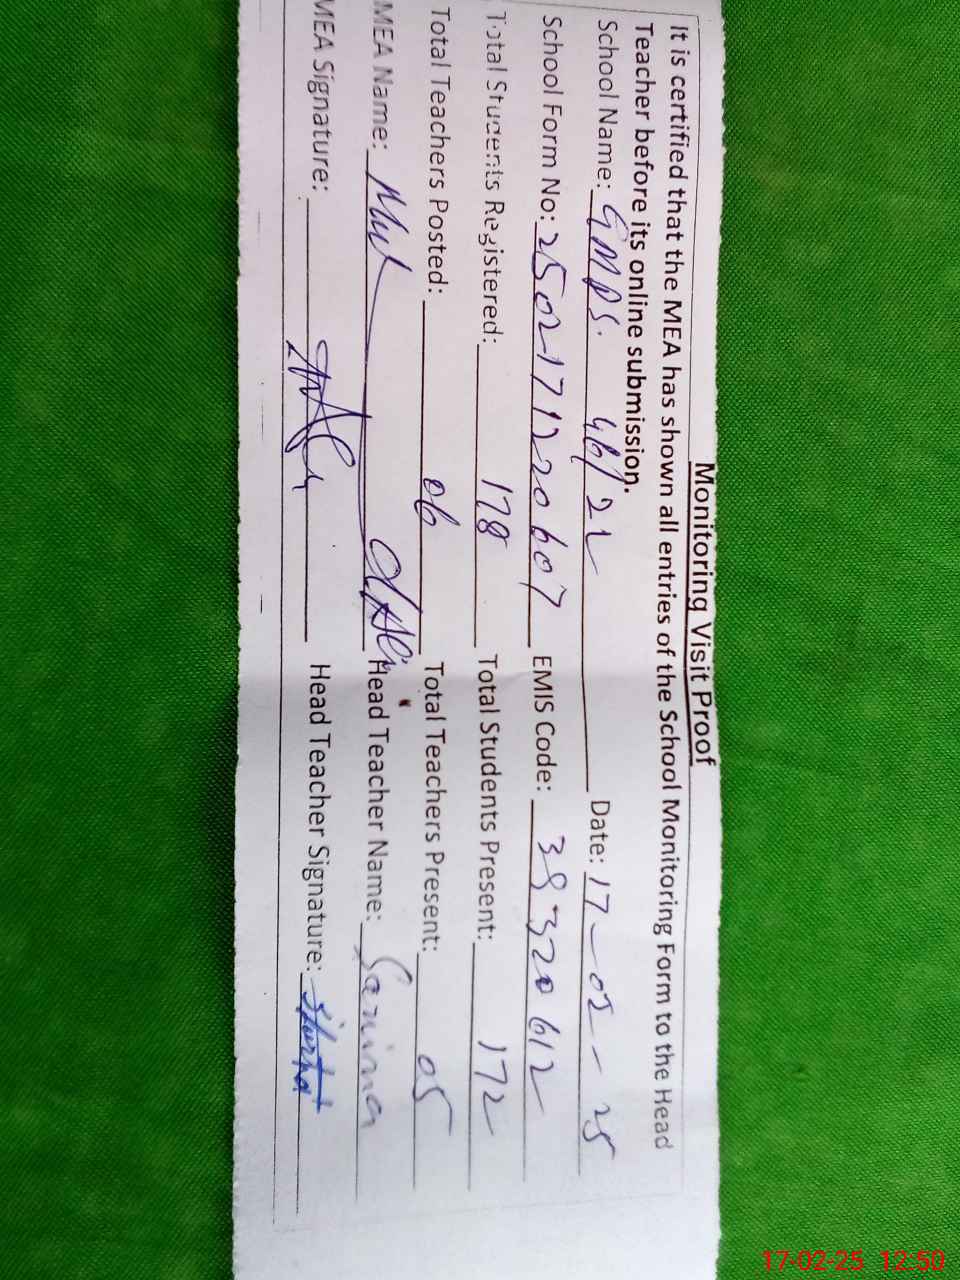 Monitoring Visit Proof
It is certified that the MEA has shown all entries of the School Monitoring Form to the Head
Teacher before its online submission.
School Name: GMPS. 46/21 Date: 17-02-25
School Form No: 2502171220607 EMIS Code: 38320612
Total Students Registered: 178 Total Students Present: 172
Total Teachers Posted: 06 Total Teachers Present: 05
MEA Name: Head Teacher Name: Samina
MEA Signature: Head Teacher Signature:
17-02-25 12:50